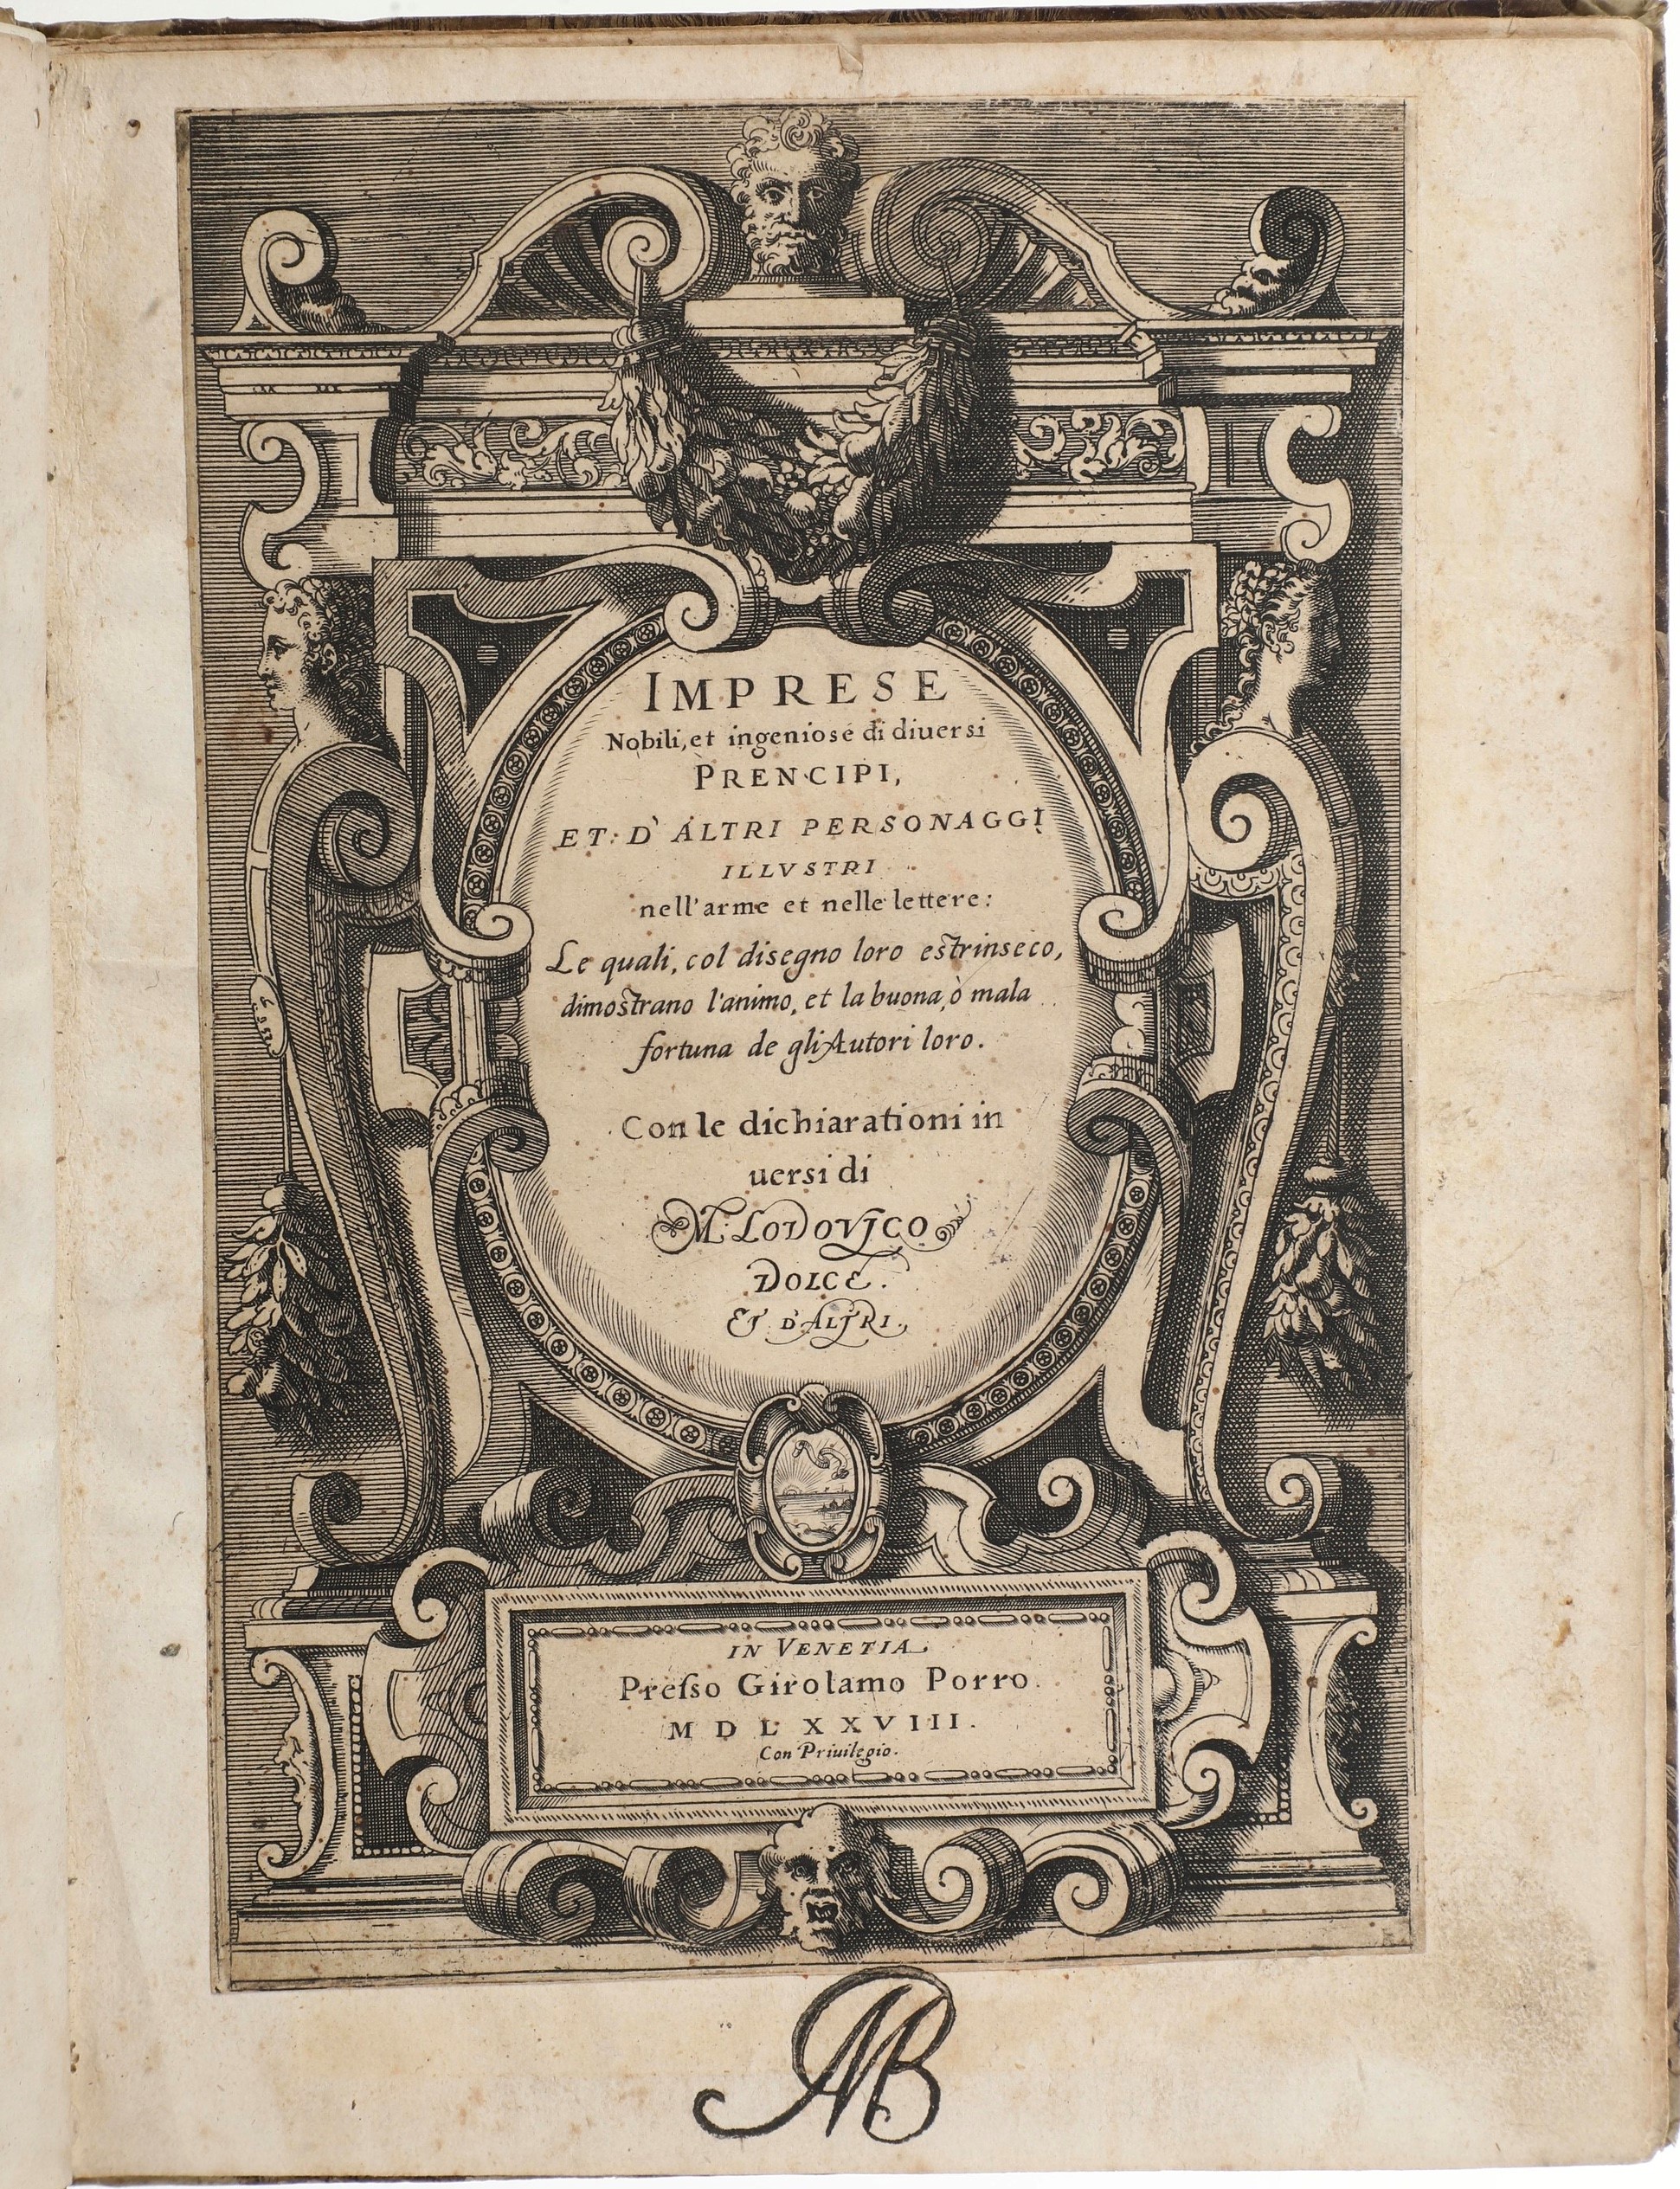 IMPRESE
Nobili, et ingeniose di diuersi
PRENCIPI,
ET D' ALTRI PERSONAGGI
ILLVSTRI
nell'arme et nelle lettere:
Le quali, col disegno loro estrinseco,
dimostrano l'animo, et la buona, ò mala
fortuna de gli Autori loro.
Con le dichiarationi in
uersi di
M. LODOVICO
DOLCE.
ET D'ALTRI.
IN VENETIA
Presso Girolamo Porro.
M D L X X V I I I.
Con Priuilegio.
AMB